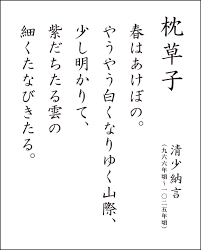 枕草子
清少納言
（九六六年頃～一〇二五年頃）
春はあけぼの。
やうやう白くなりゆく山際、
少し明かりて、
紫だちたる雲の
細くたなびきたる。